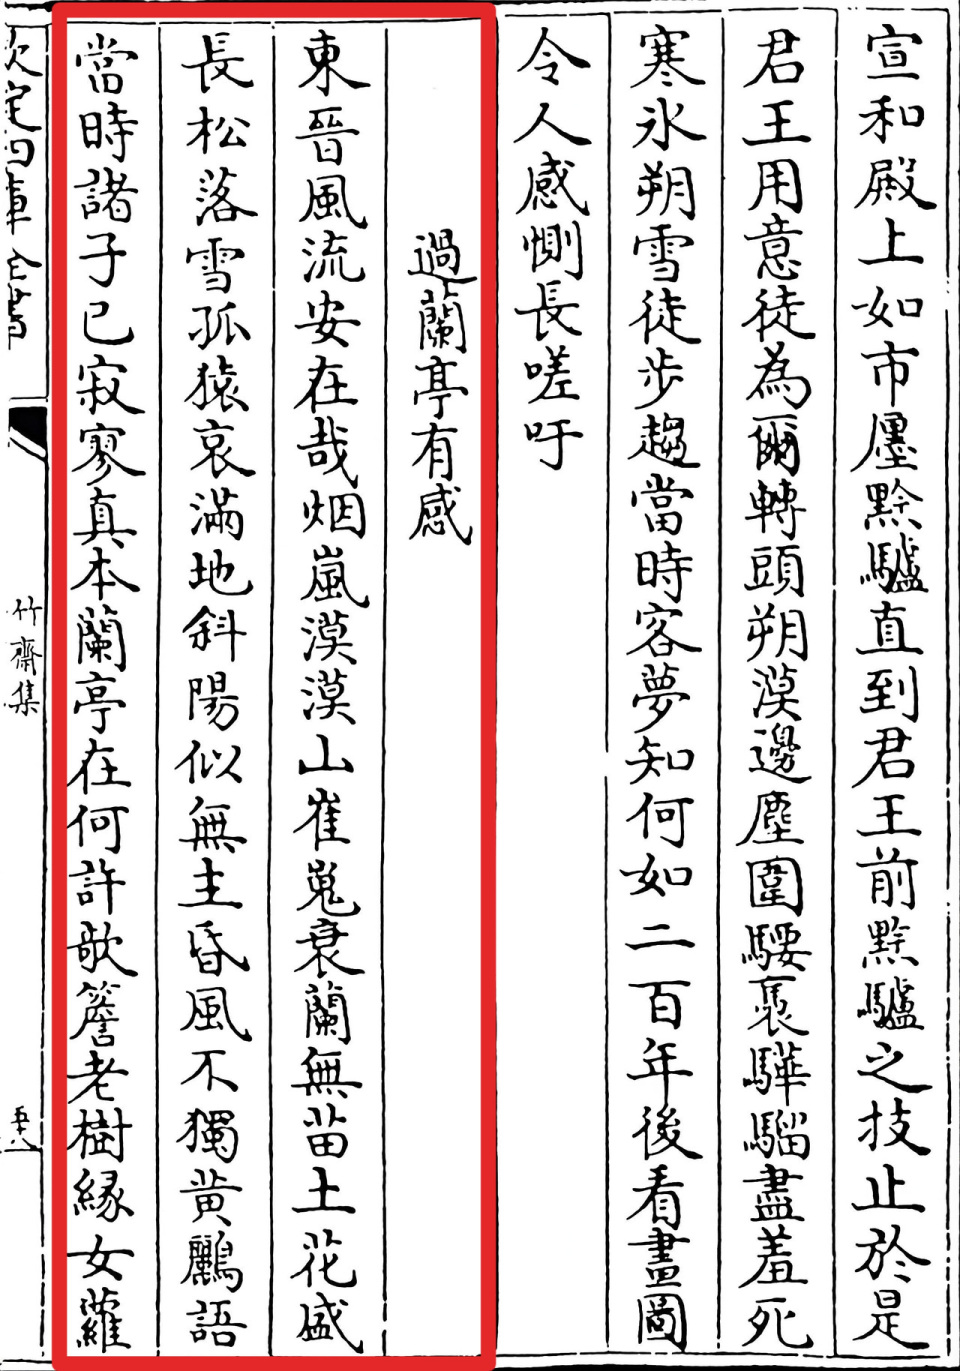 宣和殿上如市廛黔驢直到君王前黔驢之技止於是
君王用意徒為爾轉頭朔漠邊塵圍騕褭驊騮盡羞死
寒氷朔雪徒步趨當時客夢知何如二百年後看畫圖
令人感惻長嗟吁
過蘭亭有感
東晉風流安在哉烟嵐漠漠山崔嵬衰蘭無苗土花盛
長松落雪孤猿哀滿地斜陽似無主昏風不獨黄鸝語
當時諸子已寂寥真本蘭亭在何許欹簷老樹緣女蘿
欽定四庫全書
竹齋集